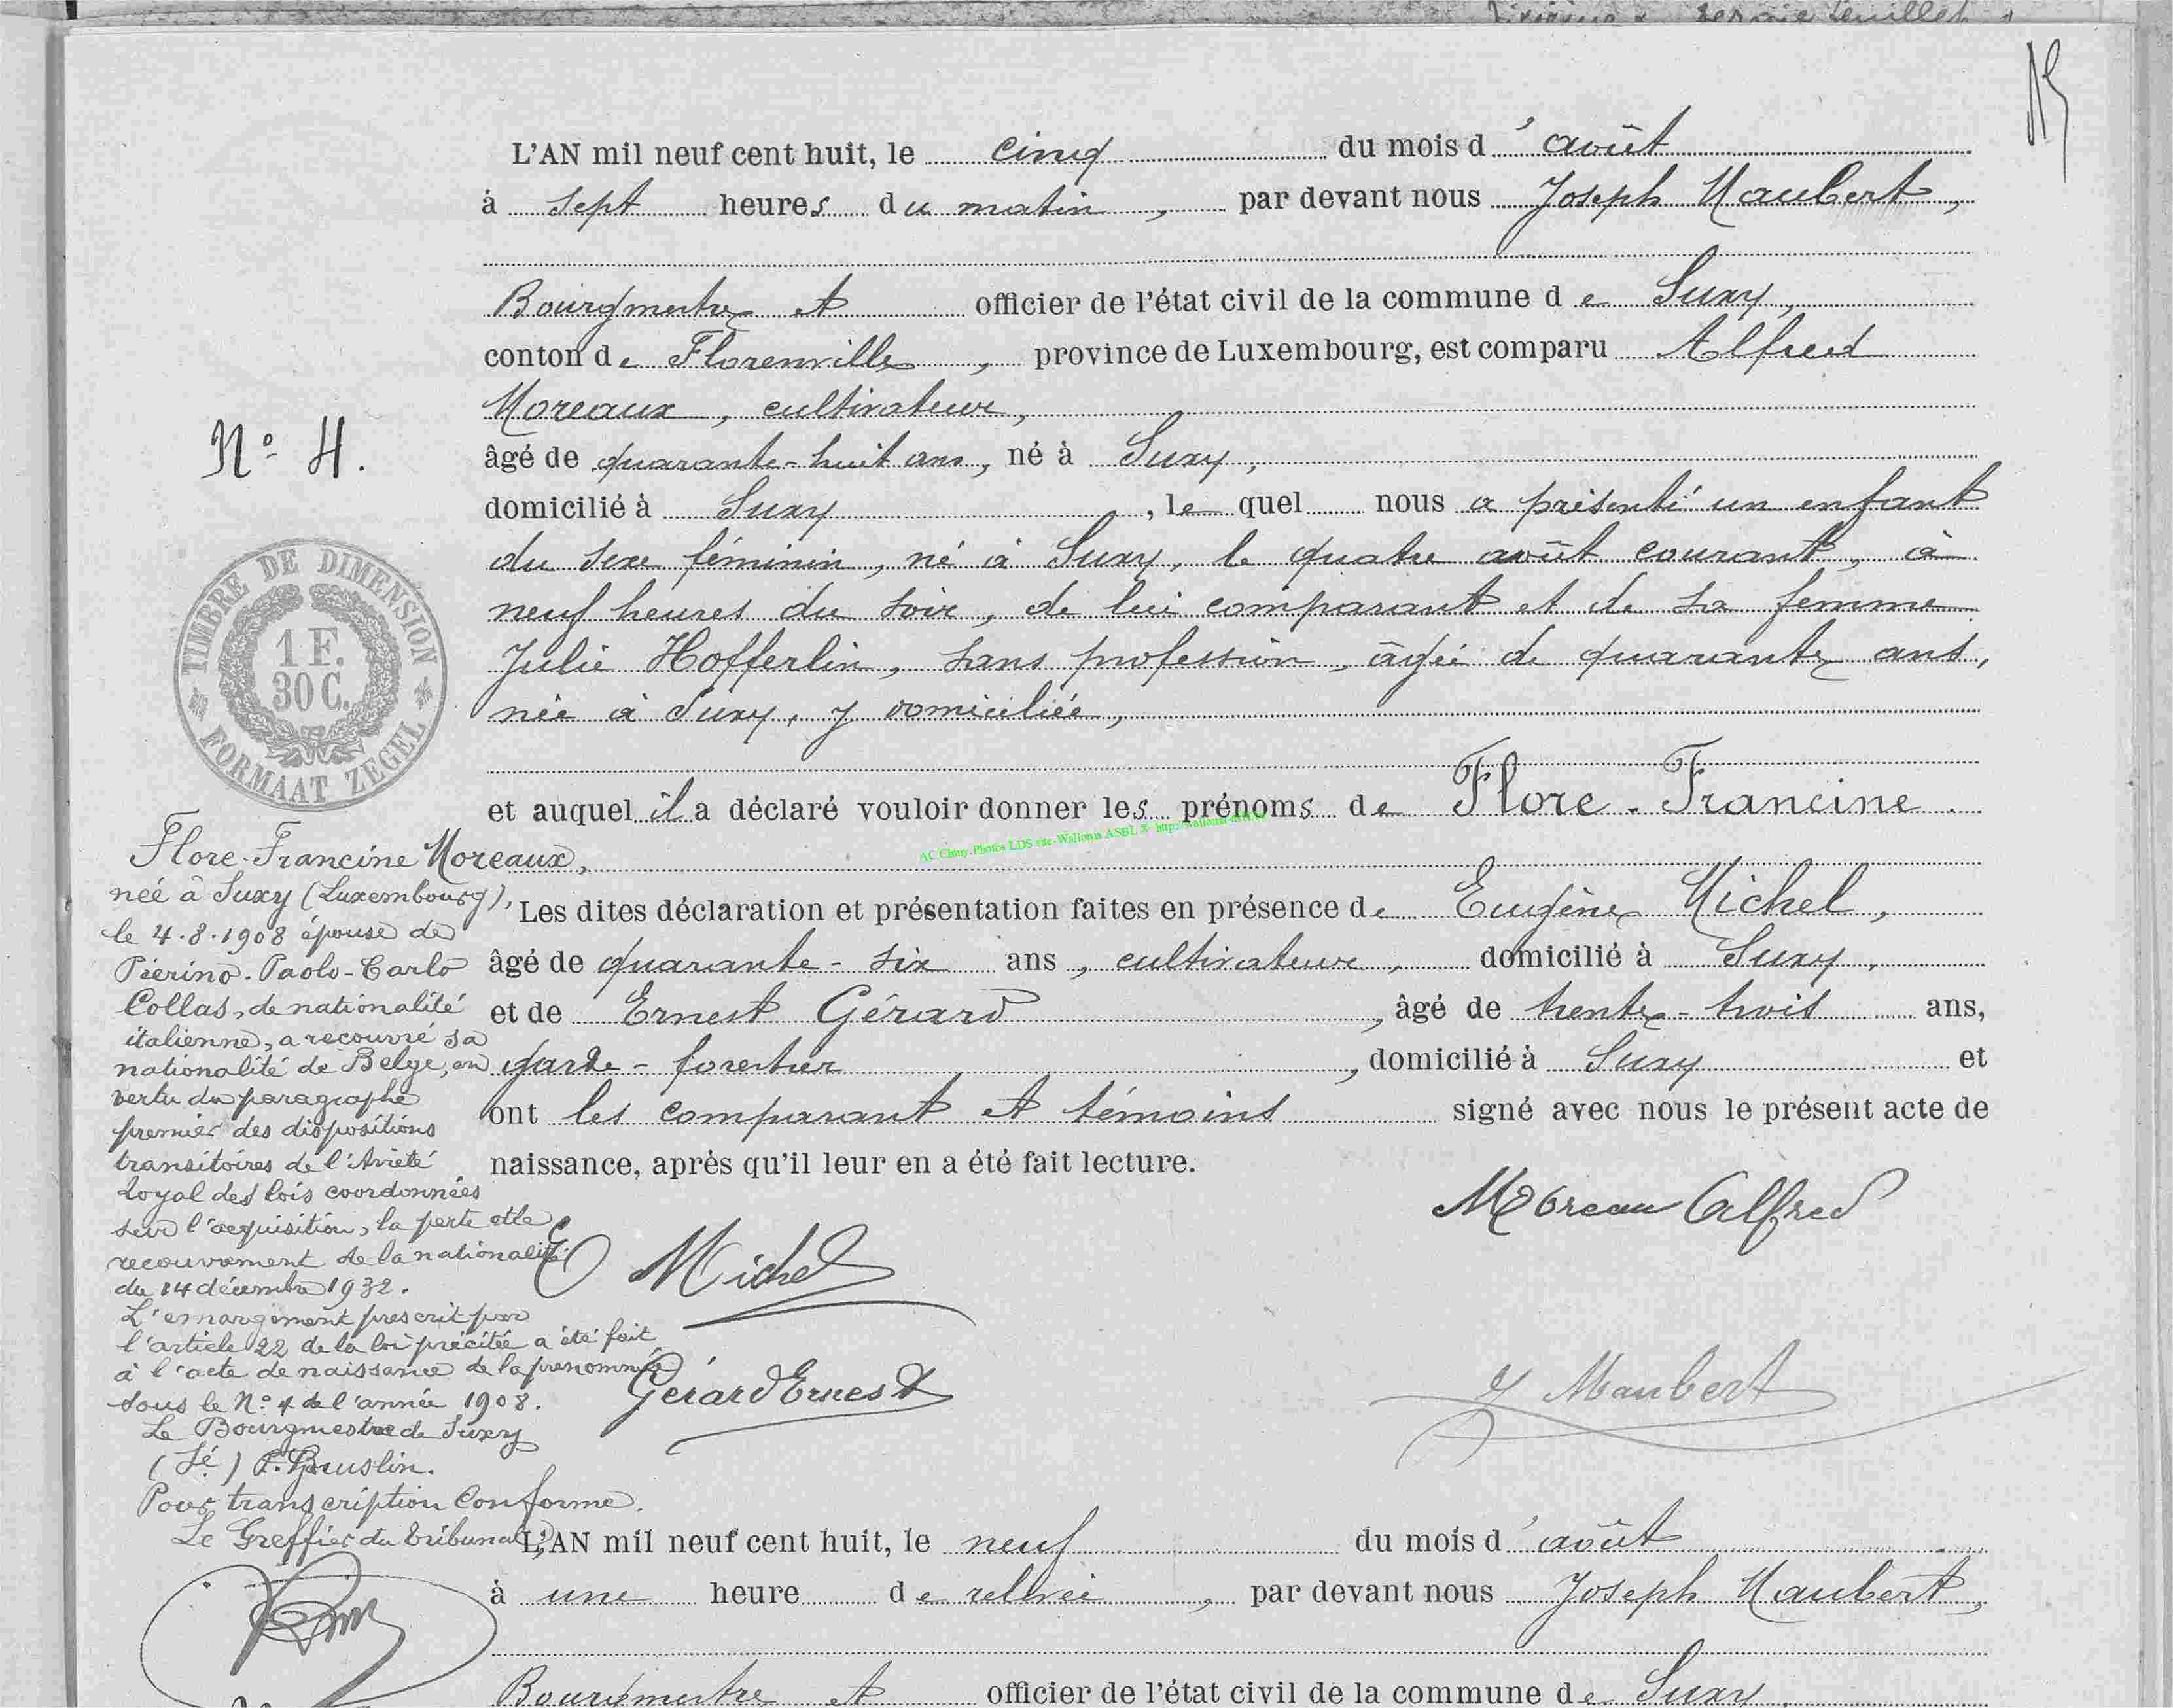 L'AN mil neuf cent huit, le cinq du mois d'août
à sept heures du matin, par devant nous Joseph Maubert,
Bourgmestre et officier de l'état civil de la commune de Suxy,
conton de Florenville, province de Luxembourg, est comparu Alfred
Moreaux, cultivateur,
âgé de quarante-huit ans, né à Suxy,
domicilié à Suxy, le quel nous a présenté un enfant
du sexe féminin, né à Suxy, le quatre août courant, à
neuf heures du soir, de lui comparant et de sa femme
Julie Hofferlin, sans profession, âgée de quarante ans,
née à Suxy, y domiciliée,
et auquel il a déclaré vouloir donner les prénoms de Flore-Francine.
Les dites déclaration et présentation faites en présence de Eugène Michel,
âgé de quarante-six ans, cultivateur, domicilié à Suxy,
et de Ernest Gérard, âgé de trente-trois ans,
garde-forestier, domicilié à Suxy et
ont les comparant et témoins signé avec nous le présent acte de
naissance, après qu'il leur en a été fait lecture.
Moreau Alfred
E Michel
Gérard Ernest
J Maubert
N° 4.
TIMBRE DE DIMENSION
1 F.
30 C.
FORMAAT ZEGEL
Flore-Francine Moreaux,
née à Suxy (Luxembourg),
le 4.8.1908 épouse de
Pierino-Paolo-Carlo
Collas, de nationalité
italienne, a recouvré sa
nationalité de Belge, en
vertu du paragraphe
premier des dispositions
transitoires de l'Arrêté
Royal des lois coordonnées
sur l'acquisition, la perte et le
recouvrement de la nationalité
du 14 décembre 1932.
L'émargement prescrit par
l'article 22 de la loi précitée a été fait
à l'acte de naissance de la prénommée
sous le N° 4 de l'année 1908.
Le Bourgmestre de Suxy
(Sé)
Pour transcription conforme.
Le Greffier du tribunal,
L'AN mil neuf cent huit, le neuf du mois d'août
à une heure de relevée, par devant nous Joseph Maubert,
Bourgmestre et officier de l'état civil de la commune de Suxy